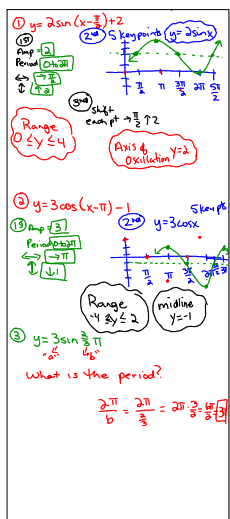 ① y = 2sin(x-π/2)+2
1st
Amp = 2
Period 0 to 2π
↔ → π/2
↕ ↑ 2
2nd
5 key points
y = 2sinx
π/2 π 3π/2 2π 5π/2
3rd shift
each pt → π/2 ↑ 2
Range
0 ≤ y ≤ 4
Axis of
Oscillation y=2
② y = 3cos(x-π) - 1
1st
Amp = 3
Period 0 to 2π
↔ → π
↕ ↓ 1
2nd
y = 3cosx
5 key pts
π/2 π 3π/2 2π
Range
-4 ≤ y ≤ 2
midline
y = -1
③ y = 3sin 2/3 π
"a" "b"
What is the period?
2π/b = 2π/(2/3) = 2π · 3/2 = 6π/2 = 3π